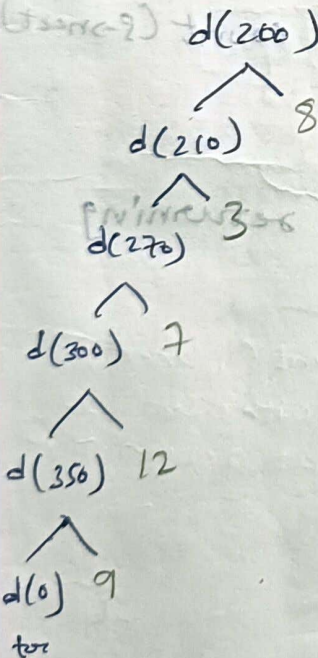 d(200)
8
d(210)
3
d(270)
d(300) 7
d(350) 12
d(0) 9